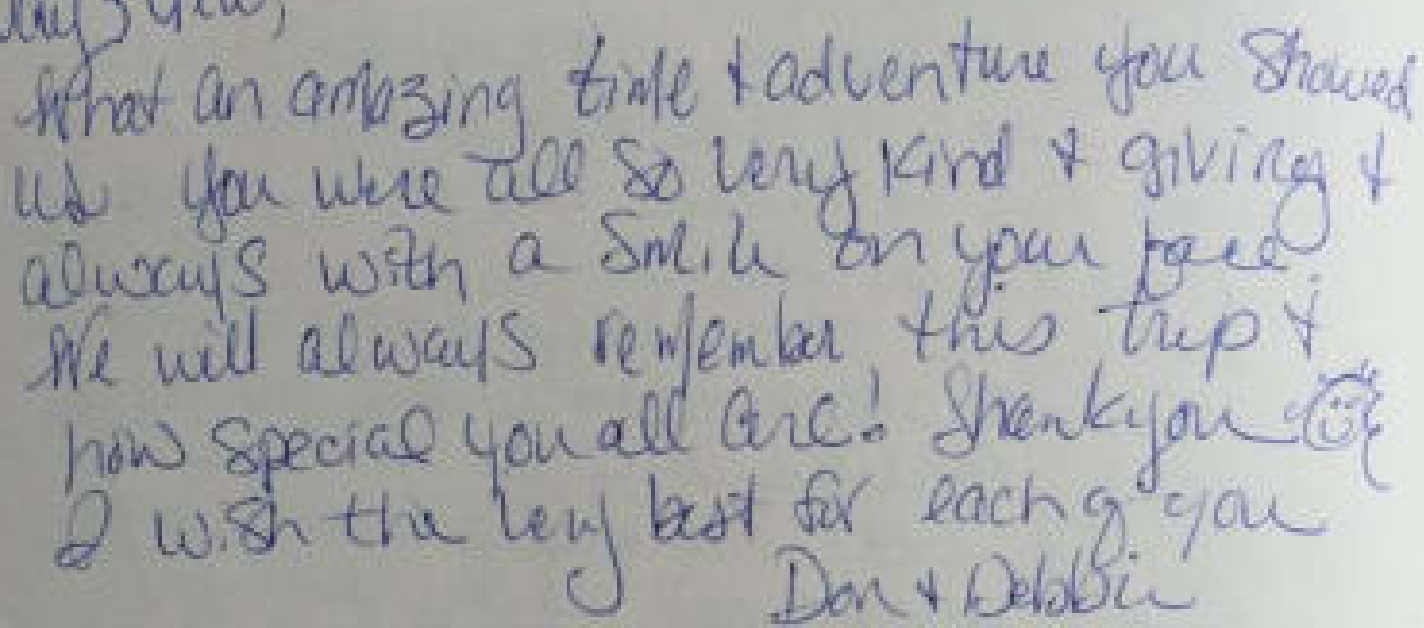 What an amazing time & adventure you showed
us. you were all so very kind & giving &
always with a smile on your face.
We will always remember this trip &
how special you all are! Thank you
I wish the very best for each of you
Don & Debbie